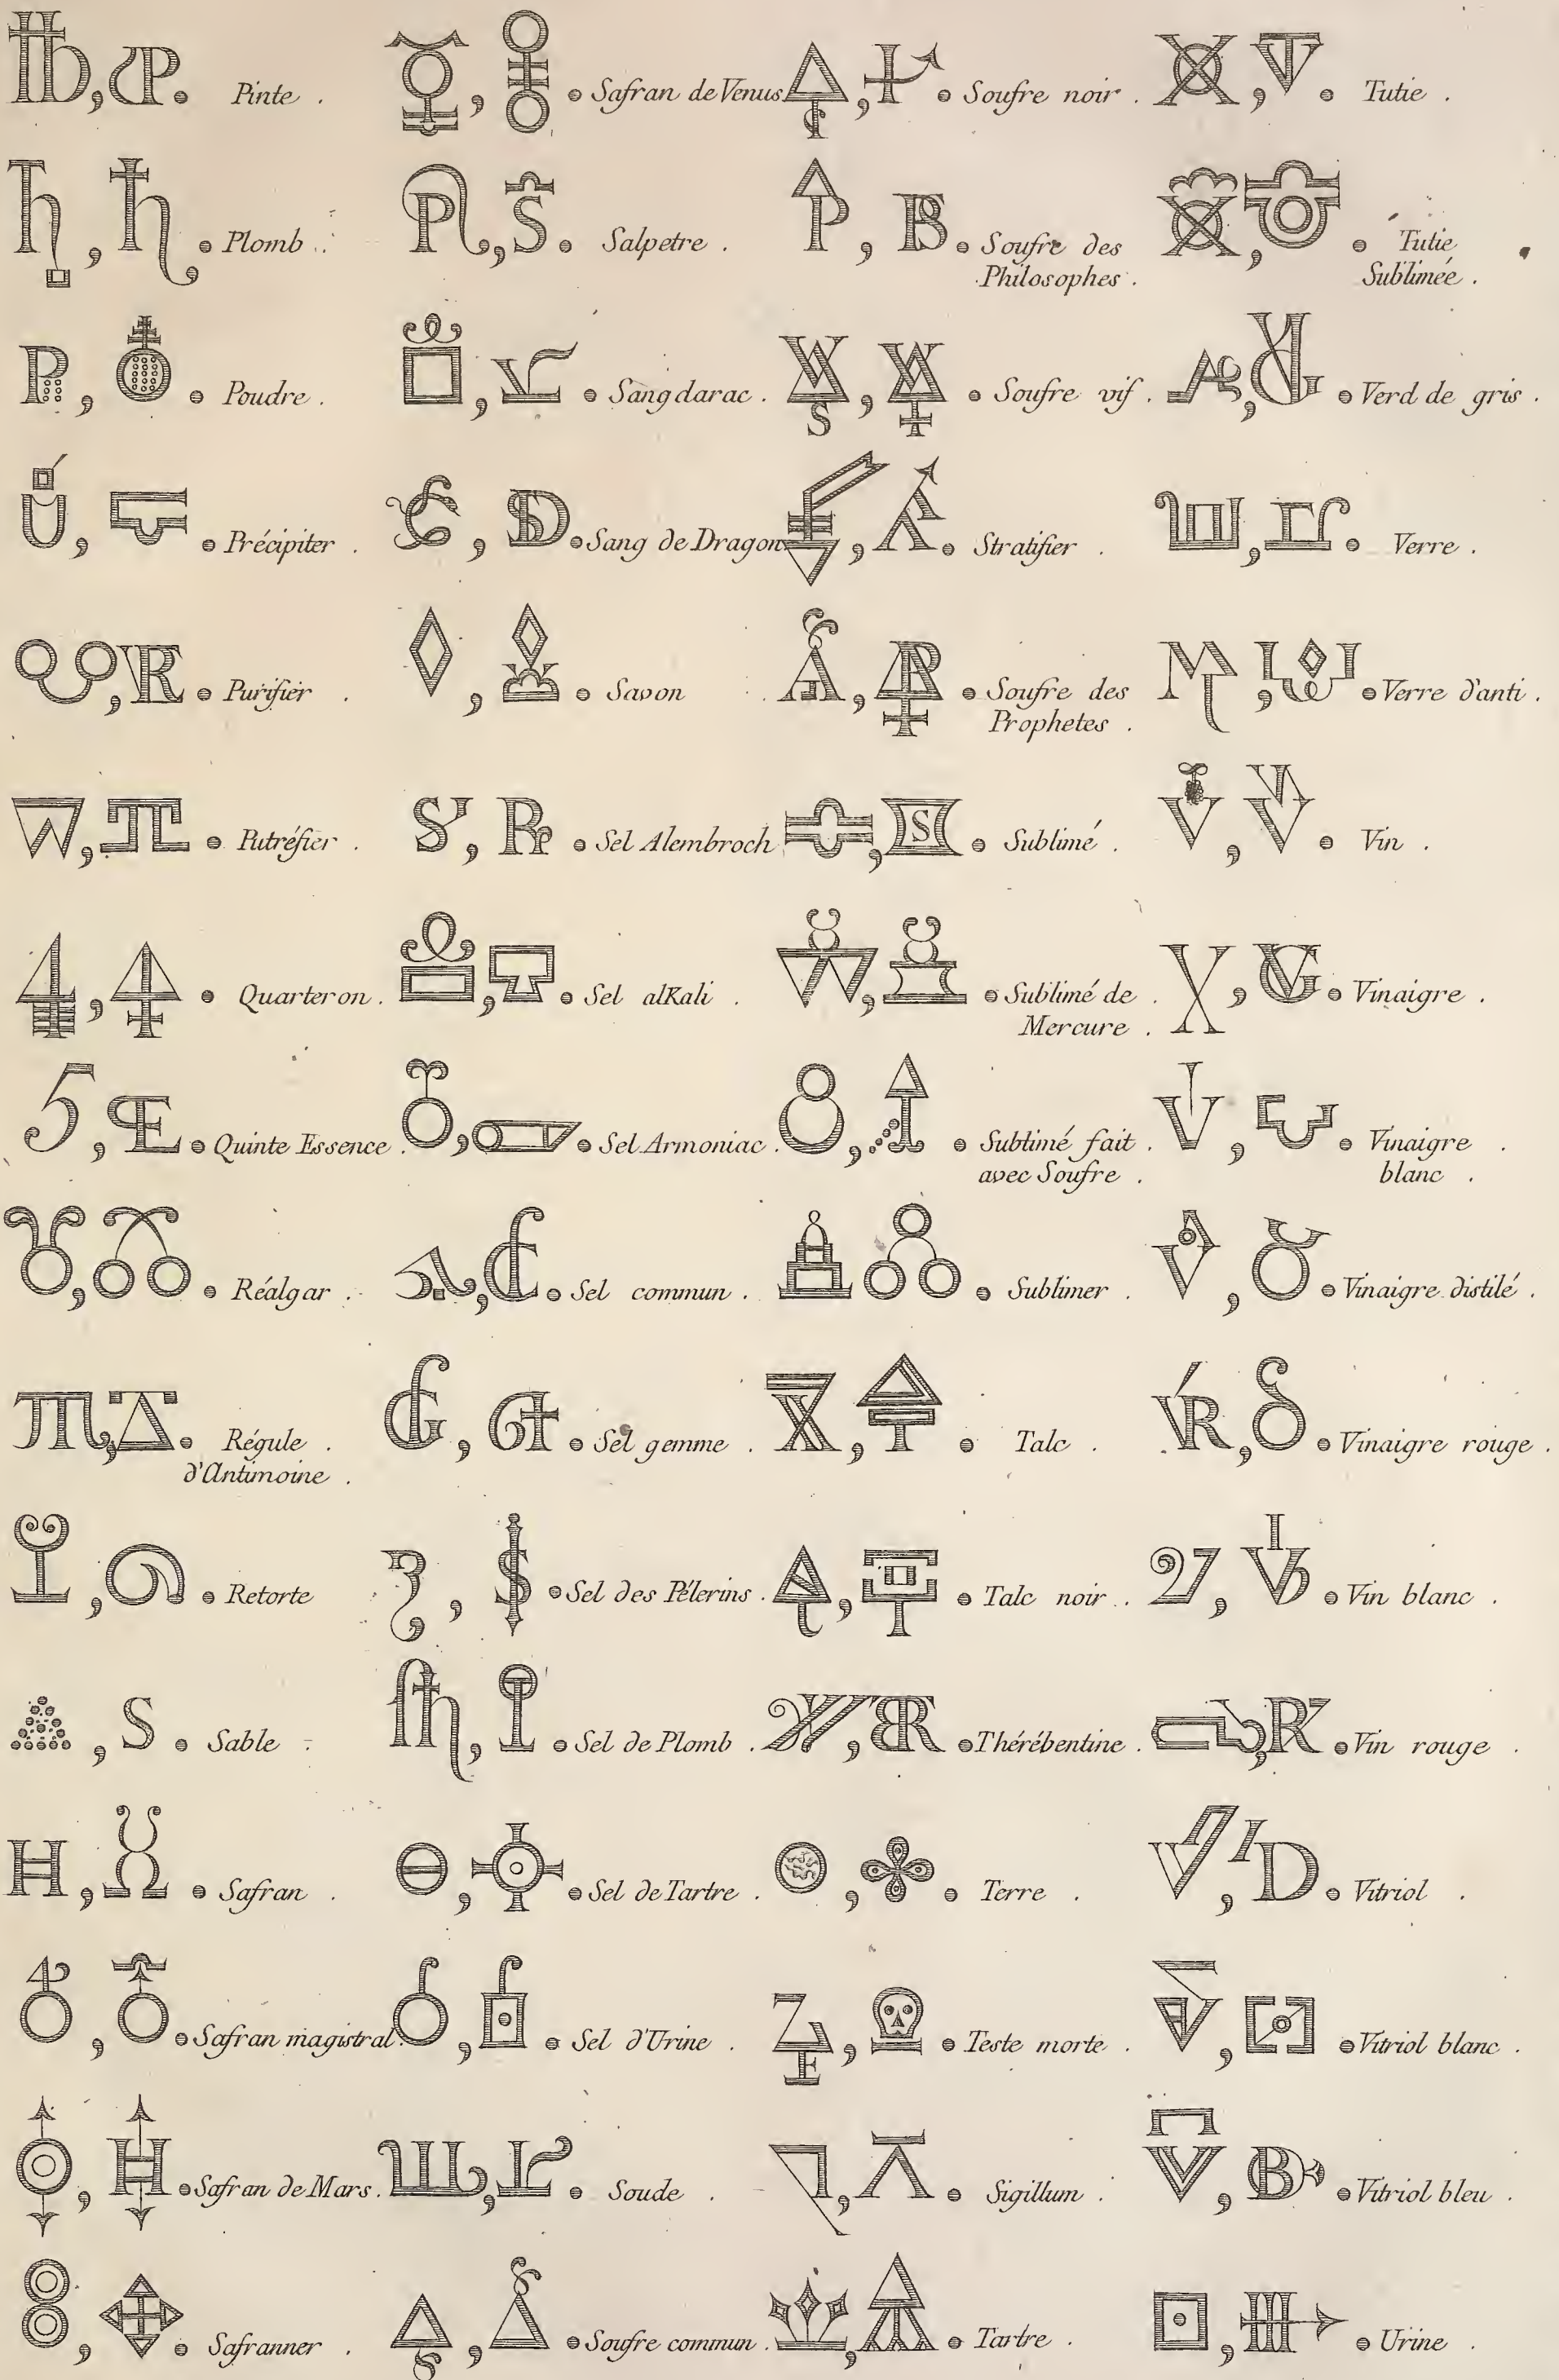 Pinte .
Plomb .
Poudre .
Précipiter .
Purifier .
Putréfier .
Quarteron .
Quinte Essence .
Réalgar .
Régule .
d'Antimoine .
Retorte
Sable
Safran .
Safran magistral .
Safran de Mars .
Safranner .
Safran de Venus
Salpetre .
Sang darac .
Sang de Dragon
Savon
Sel Alembroch
Sel alKali .
Sel Armoniac .
Sel commun .
Sel gemme .
Sel des Pélerins .
Sel de Plomb .
Sel de Tartre .
Sel d'Urine .
Soude .
Soufre commun .
Soufre noir .
Soufre des
Philosophes .
Soufre vif .
Stratifier .
Soufre des
Prophetes .
Sublimé .
Sublimé de .
Mercure .
Sublimé fait .
avec Soufre .
Sublimer .
Talc .
Talc noir .
Thérébentine .
Terre .
Teste morte .
Sigillum .
Tartre .
Tutie .
Tutie
Sublimée .
Verd de gris .
Verre .
Verre d'anti .
Vin .
Vinaigre .
Vinaigre .
blanc .
Vinaigre distilé .
Vinaigre rouge .
Vin blanc .
Vin rouge .
Vitriol .
Vitriol blanc .
Vitriol bleu .
Urine .